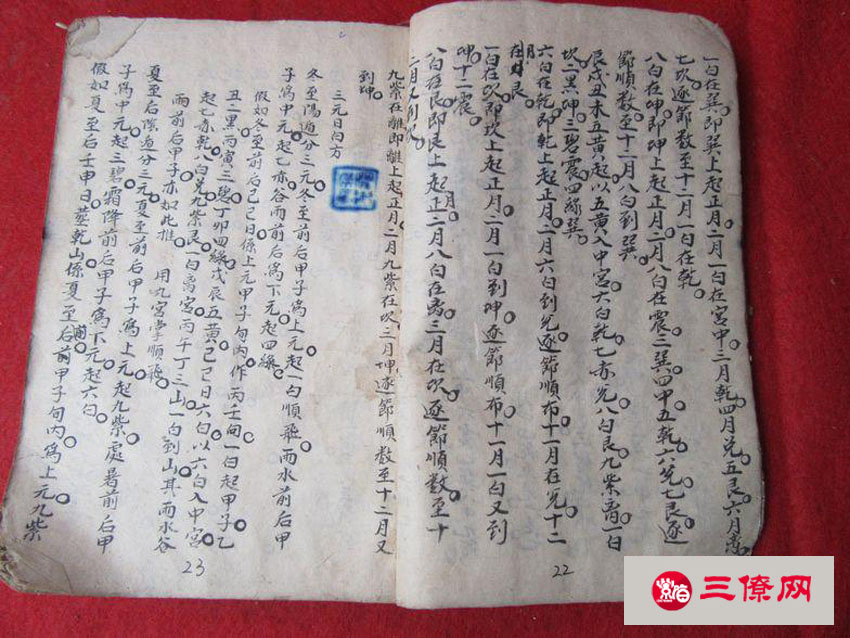 一白在巽即巽上起正月二月一白在宫中三月乾四月兑五艮六月离
七坎逐節数至十二月一白在乾
八白在坤即坤上起正月二月八白在震三巽四中五乾六兑七艮逐
節順数至十一月八白到巽
辰戌丑未五黄起以五黄入中宫六白乾七赤兑八白艮九紫离一白
坎二黑坤三碧震四綠巽
六白在乾即乾上起正月二月六白到兑逐節順布十一月在兑十二
月在艮
一白在坎即坎上起正月二月一白到坤逐節順布十一月一白又到
坤十二震
八白在艮即艮上起正月二月八白在离三月在坎逐節順数至十
二月又到
22
九紫在離即離上起正月二月九紫在坎三月坤逐節順数至十二月又
到坤
三元日白方
冬至陽遁分三元冬至前后甲子為上元起一白順飛雨水前后甲
子為中元起七赤谷雨前后為下元起四綠
假如冬至前后己巳日係上元甲子旬内作丙壬向一白起甲子乙
丑二黑丙寅三碧丁卯四綠戊辰五黄己巳日六白以六白入中宫
起七赤乾八白兑九紫艮一白离宫丙午丁三山一白到山其雨水谷
雨前后甲子亦如此推 用九宫掌順飛
夏至后陰遁分三元夏至前后甲子為上元起九紫處暑前后甲
子為中元起三碧霜降前后甲子為下元起六白
假如夏至后壬申日塟乾山係夏至后前甲子旬内為上元九紫
23
三僚网